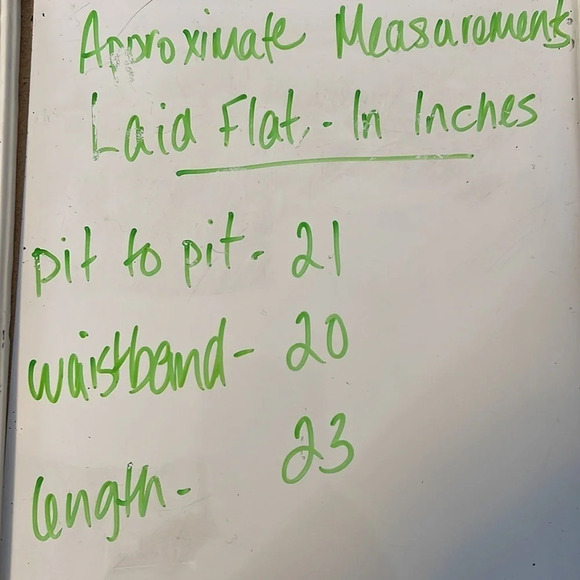 Approximate Measurements
Laid Flat. - In Inches
pit to pit - 21
waistband - 20
length - 23